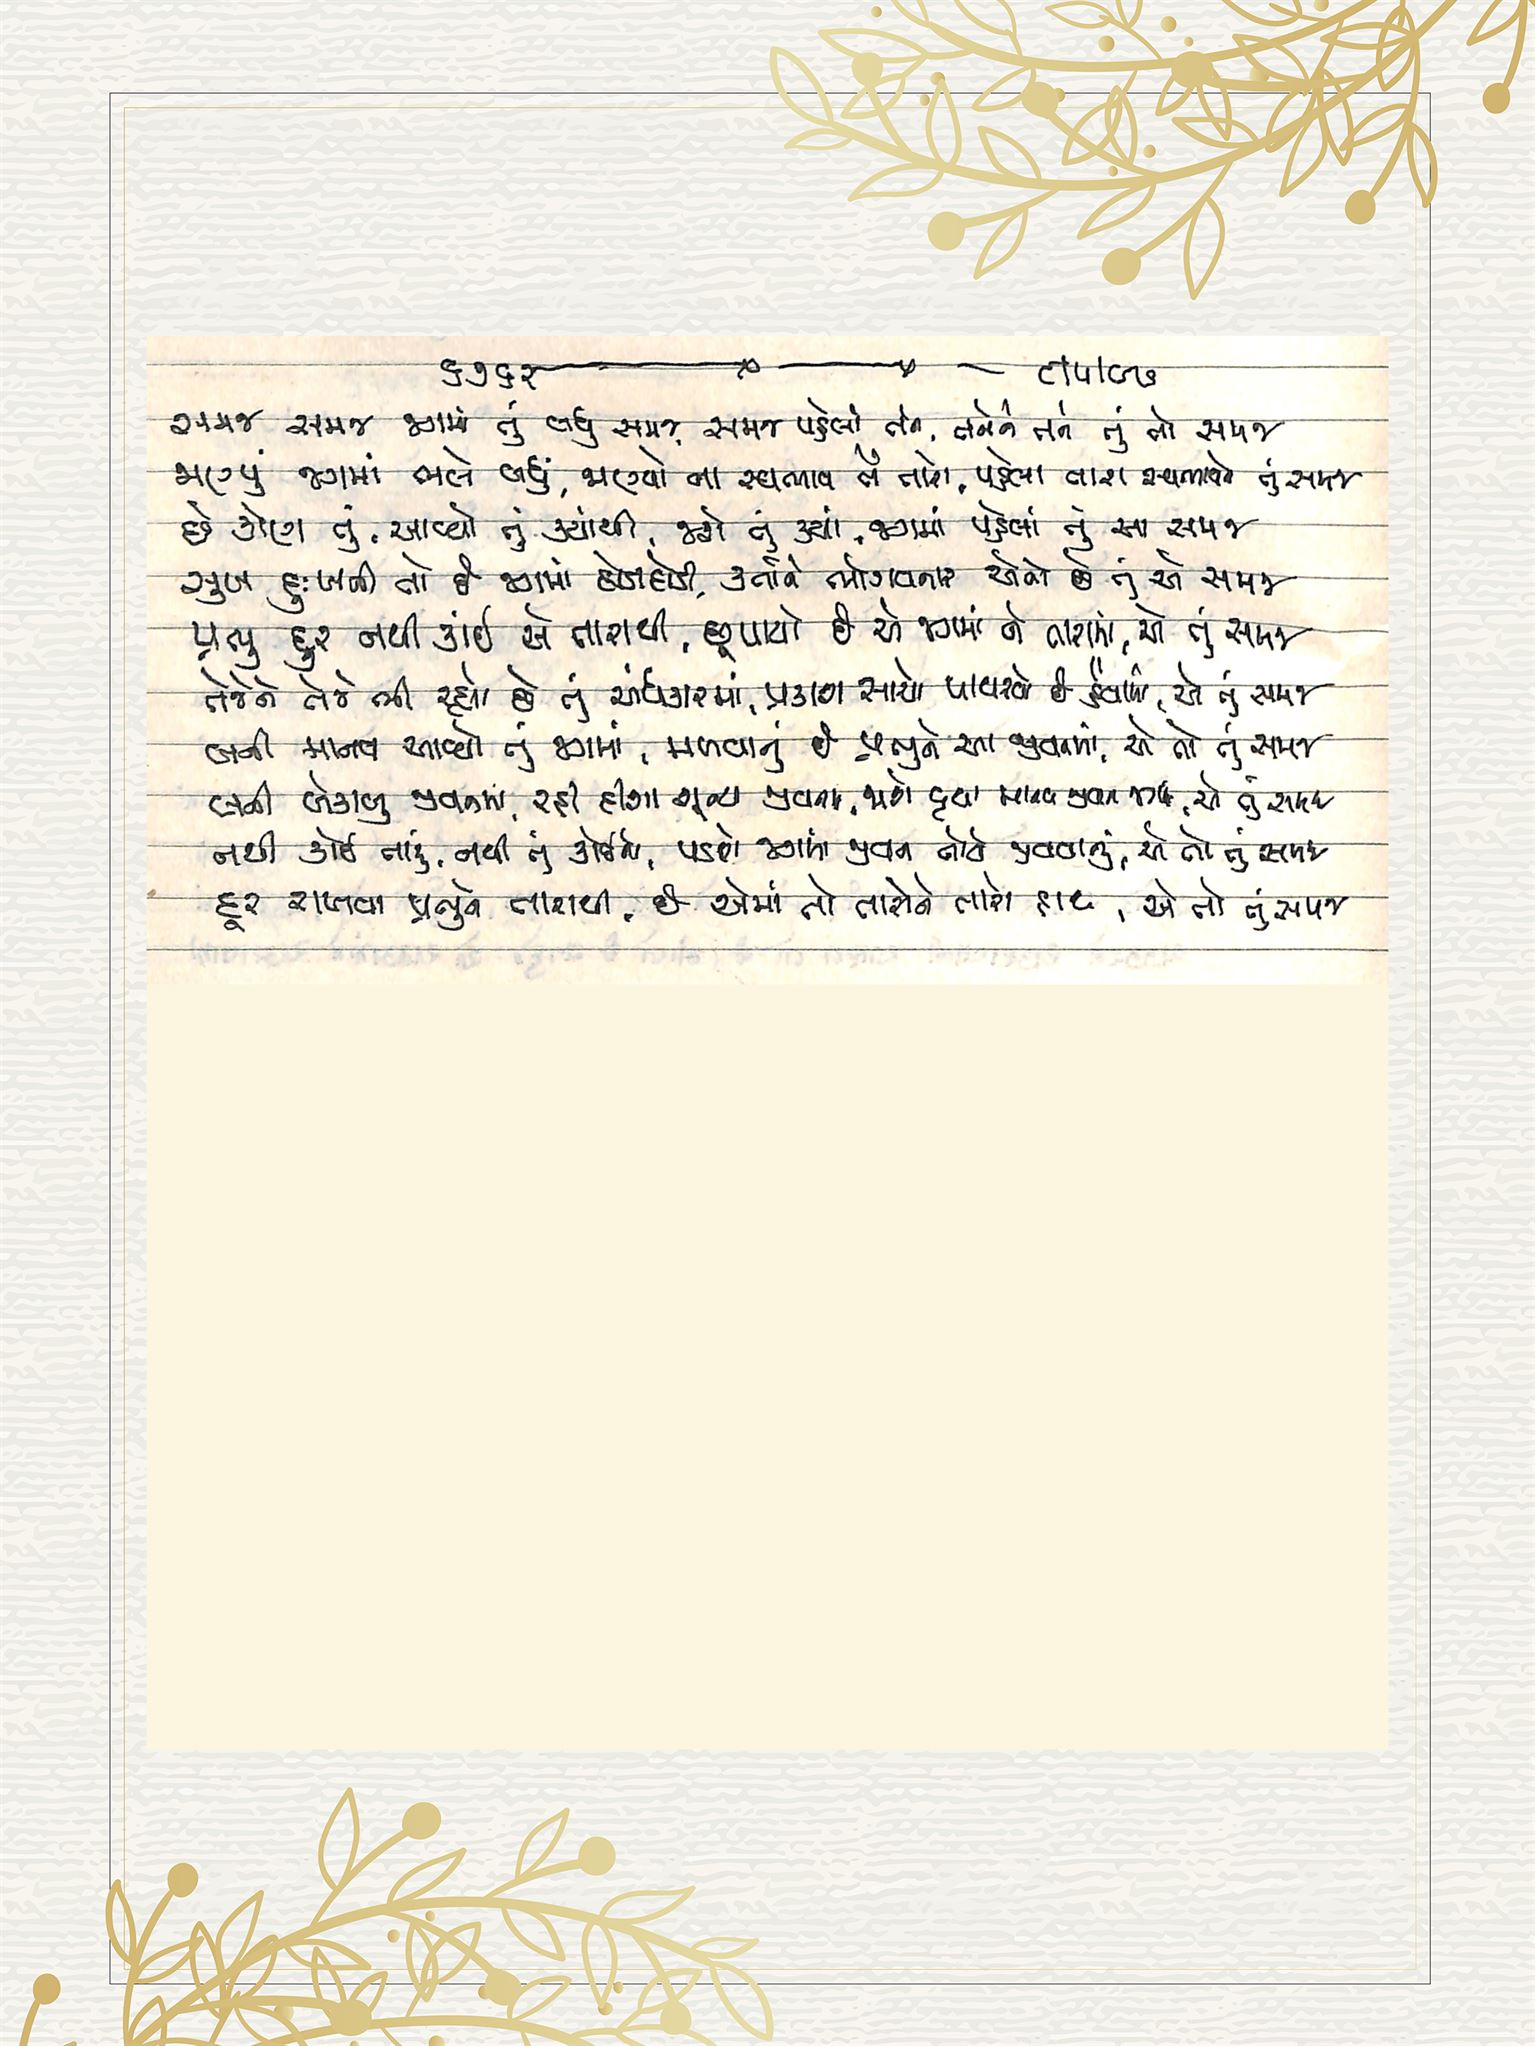 ૬૭૬૨ ૮।૫।૯૭
સમજ સમજ જગમાં તું બધું સમજ, સમજ પહેલાં તને, તનેને તને તું તો સમજ
જાણ્યું જગમાં ભલે બધું, જાણ્યો ના સ્વભાવ તેં તારો, પહેલા તારા સ્વભાવને તું સમજ
છે કોણ તું, આવ્યો તું ક્યાંથી, જાશે તું ક્યાં, જગમાં પહેલાં તું આ સમજ
સુખ દુઃખની તો છે જગમાં દોડાદોડી, કર્તાને ભોગવનાર એનો છે તું એ સમજ
પ્રભુ દુર નથી કાંઈ એ તારાથી, છૂપાયો છે એ જગમાં ને તારામાં, એ તું સમજ
તેજેને તેજે બની રહ્યો છે તું અંધકારમાં, પ્રકાશ સાચો પાથરવો છે હૈયાંમાં, એ તું સમજ
બની માનવ આવ્યો તું જગમાં, મળવાનું છે પ્રભુને આ જીવનમાં, એ તો તું સમજ
બની બેકાબુ જીવનમાં, રહી દીશા શૂન્ય જીવનમાં, જાશે વૃથા માનવ જીવન જગમાં, એ તું સમજ
નથી કોઈ તારું, નથી તું કોઈનો, પડશે જગમાં જીવન તોયે જીવવાનું, એ તો તું સમજ
દૂર રાખવા પ્રભુને તારાથી, છે એમાં તો તારોને તારો હાથ, એ તો તું સમજ